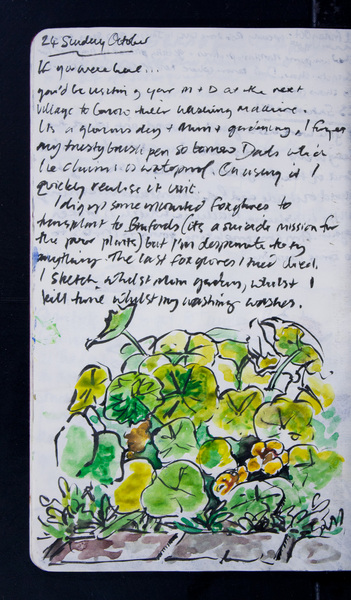 24 Sunday October
If you were here...
you'd be visiting your M + D at the next
village to borrow their washing machine.
Its a glorious day + Mum + gardening, I forget
my trusty brush pen so borrow Dads which
he claims is waterproof. On using it I
quickly realise it isnt.
I dig up some unwanted foxgloves to
transplant to Binfords (its a suicide mission for
the poor plants) but I'm desperate to try
anything. The last foxgloves I tried died.
I sketch whilst Mum gardens, whilst I
kill time whilst my washing washes.